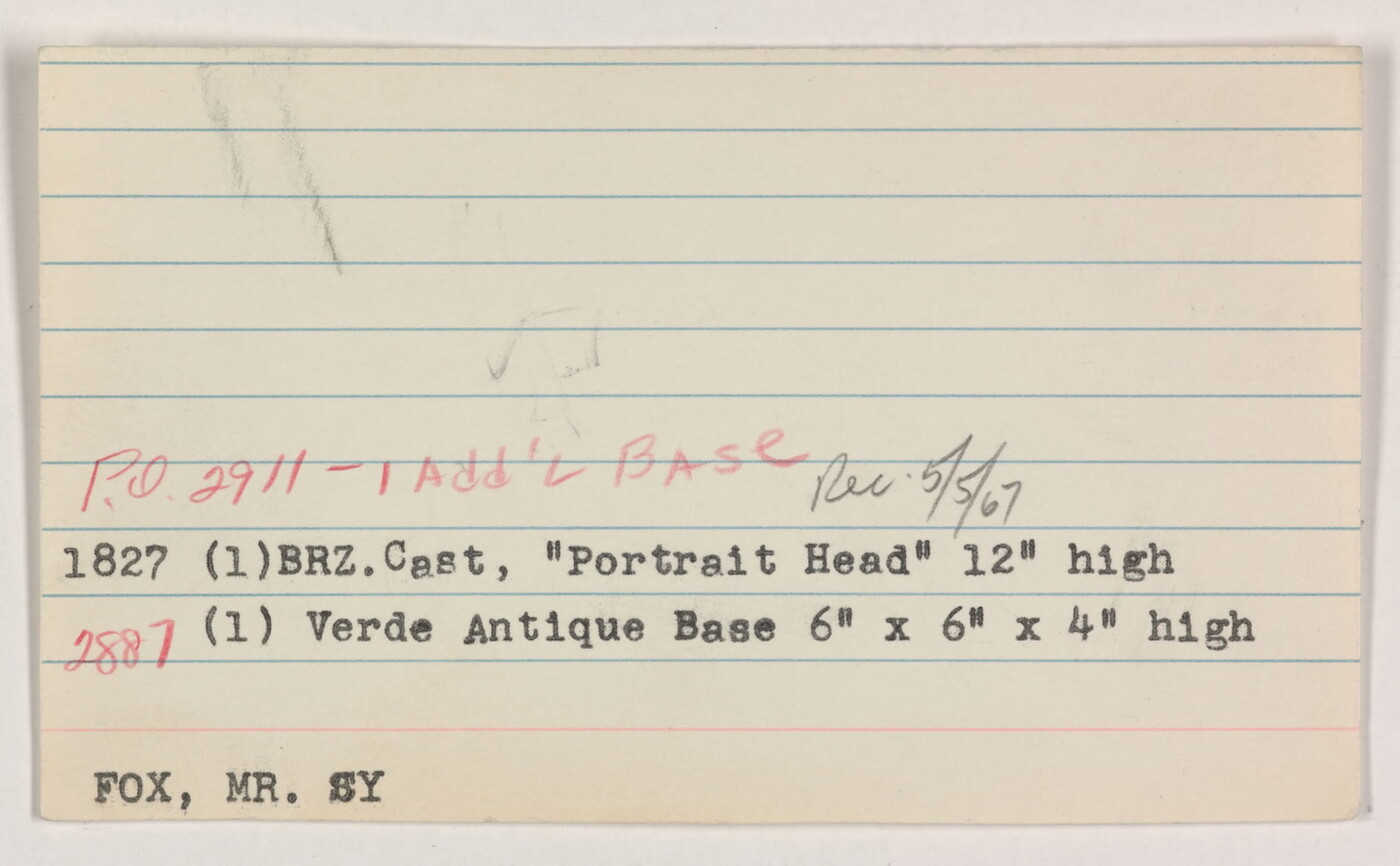 P.O. 2911 - 1 Add'l Base Rec. 5/5/67
1827 (1)BRZ.Cast, "Portrait Head" 12" high
2887 (1) Verde Antique Base 6" x 6" x 4" high
FOX, MR. SY